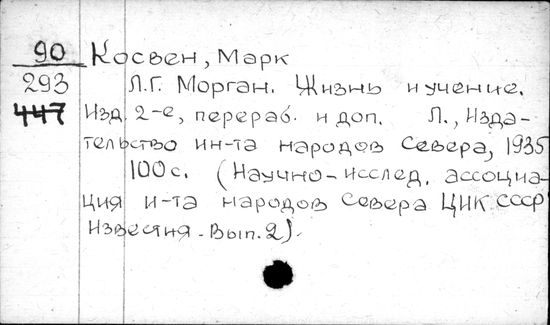 90 Косвен, Марк
293 Л.Г. Морган. Жизнь и учение.
447 Изд. 2-е, перераб. и доп. Л., Изда-
тельство ин-та народов Севера, 1935
100 с. (Научно-исслед. ассоциа-
ция и-та народов Севера ЦИК СССР
Известия. Вып. 2).